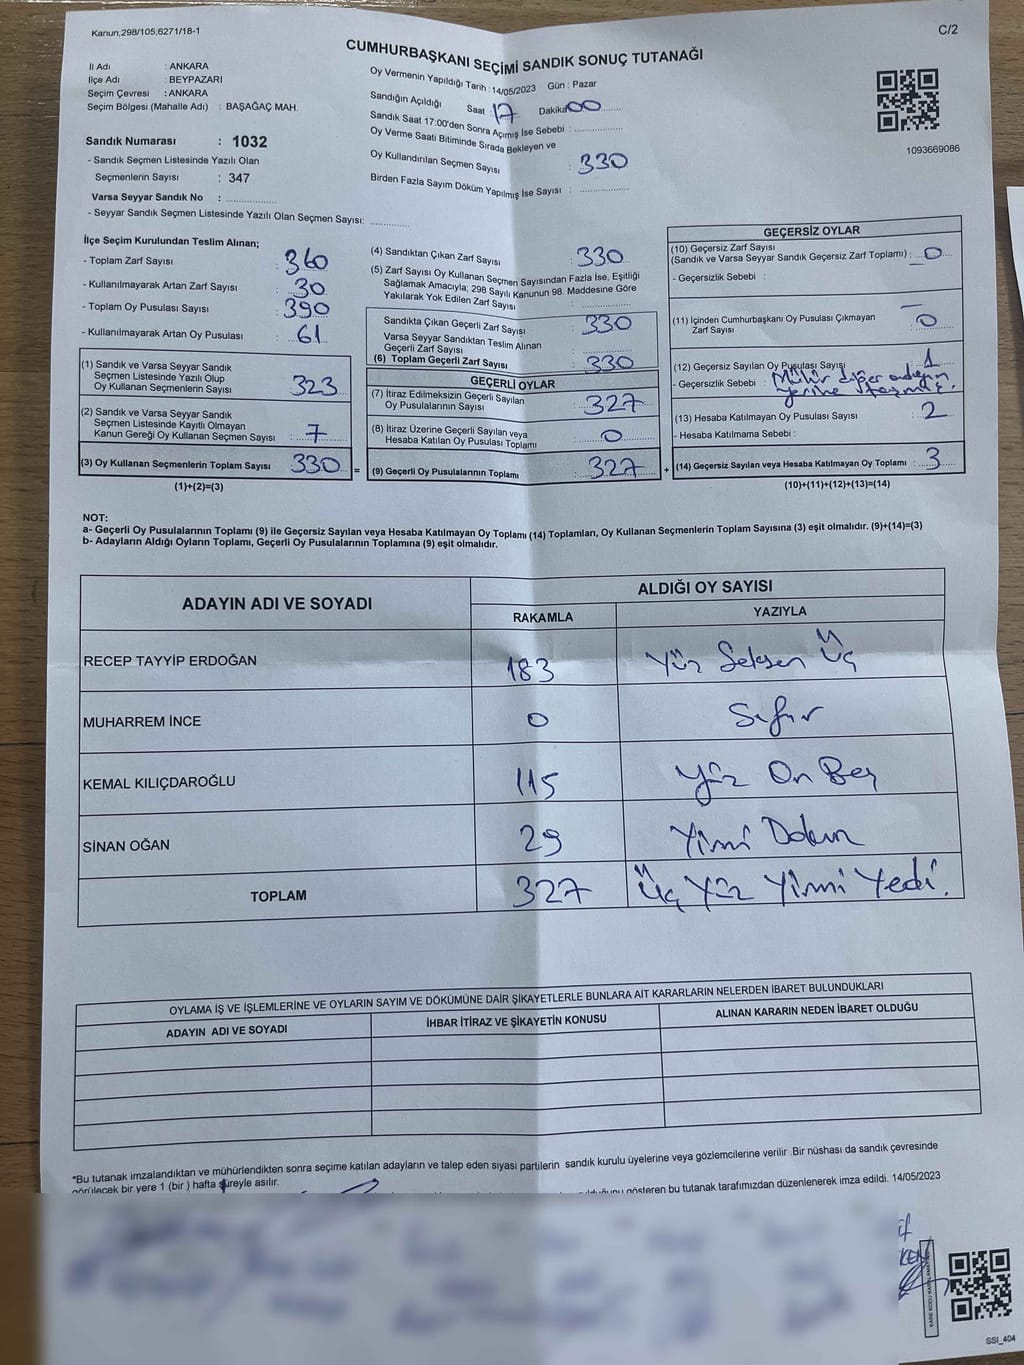 Kanun;298/105;6271/18-1
C/2
CUMHURBAŞKANI SEÇİMİ SANDIK SONUÇ TUTANAĞI
İl Adı : ANKARA
İlçe Adı : BEYPAZARI
Seçim Çevresi : ANKARA
Seçim Bölgesi (Mahalle Adı) : BAŞAĞAÇ MAH.
Oy Vermenin Yapıldığı Tarih : 14/05/2023 Gün : Pazar
Sandığın Açıldığı Saat 17 Dakika 00
Sandık Saat 17:00'den Sonra Açımış İse Sebebi :
Oy Verme Saati Bitiminde Sırada Bekleyen ve
Oy Kullandırılan Seçmen Sayısı : 330
Birden Fazla Sayım Döküm Yapılmış İse Sayısı :
1093669086
Sandık Numarası : 1032
- Sandık Seçmen Listesinde Yazılı Olan
Seçmenlerin Sayısı : 347
Varsa Seyyar Sandık No :
- Seyyar Sandık Seçmen Listesinde Yazılı Olan Seçmen Sayısı:
İlçe Seçim Kurulundan Teslim Alınan;
- Toplam Zarf Sayısı : 360
- Kullanılmayarak Artan Zarf Sayısı : 30
- Toplam Oy Pusulası Sayısı : 390
- Kullanılmayarak Artan Oy Pusulası : 61
(1) Sandık ve Varsa Seyyar Sandık
Seçmen Listesinde Yazılı Olup
Oy Kullanan Seçmenlerin Sayısı : 323
(2) Sandık ve Varsa Seyyar Sandık
Seçmen Listesinde Kayıtlı Olmayan
Kanun Gereği Oy Kullanan Seçmen Sayısı : 7
(3) Oy Kullanan Seçmenlerin Toplam Sayısı 330 =
(1)+(2)=(3)
(4) Sandıktan Çıkan Zarf Sayısı : 330
(5) Zarf Sayısı Oy Kullanan Seçmen Sayısından Fazla İse, Eşitliği
Sağlamak Amacıyla; 298 Sayılı Kanunun 98. Maddesine Göre
Yakılarak Yok Edilen Zarf Sayısı
Sandıkta Çıkan Geçerli Zarf Sayısı : 330
Varsa Seyyar Sandıktan Teslim Alınan
Geçerli Zarf Sayısı
(6) Toplam Geçerli Zarf Sayısı : 330
GEÇERLİ OYLAR
(7) İtiraz Edilmeksizin Geçerli Sayılan
Oy Pusulalarının Sayısı : 327
(8) İtiraz Üzerine Geçerli Sayılan veya
Hesaba Katılan Oy Pusulası Toplamı : 0
(9) Geçerli Oy Pusulalarının Toplamı : 327 +
GEÇERSİZ OYLAR
(10) Geçersiz Zarf Sayısı
(Sandık ve Varsa Seyyar Sandık Geçersiz Zarf Toplamı) : 0
- Geçersizlik Sebebi :
(11) İçinden Cumhurbaşkanı Oy Pusulası Çıkmayan
Zarf Sayısı : 0
(12) Geçersiz Sayılan Oy Pusulası Sayısı : 1
- Geçersizlik Sebebi : Mühür diğer adayın
yerine taşmış.
(13) Hesaba Katılmayan Oy Pusulası Sayısı : 2
- Hesaba Katılmama Sebebi :
(14) Geçersiz Sayılan veya Hesaba Katılmayan Oy Toplamı : 3
(10)+(11)+(12)+(13)=(14)
NOT:
a- Geçerli Oy Pusulalarının Toplamı (9) ile Geçersiz Sayılan veya Hesaba Katılmayan Oy Toplamı (14) Toplamları, Oy Kullanan Seçmenlerin Toplam Sayısına (3) eşit olmalıdır. (9)+(14)=(3)
b- Adayların Aldığı Oyların Toplamı, Geçerli Oy Pusulalarının Toplamına (9) eşit olmalıdır.
ADAYIN ADI VE SOYADI ALDIĞI OY SAYISI
RAKAMLA YAZIYLA
RECEP TAYYİP ERDOĞAN 183 Yüz Seksen Üç
MUHARREM İNCE 0 Sıfır
KEMAL KILIÇDAROĞLU 115 Yüz On Beş
SİNAN OĞAN 29 Yirmi Dokuz
TOPLAM 327 Üç Yüz Yirmi Yedi.
OYLAMA İŞ VE İŞLEMLERİNE VE OYLARIN SAYIM VE DÖKÜMÜNE DAİR ŞİKAYETLERLE BUNLARA AİT KARARLARIN NELERDEN İBARET BULUNDUKLARI
ADAYIN ADI VE SOYADI İHBAR İTİRAZ VE ŞİKAYETİN KONUSU ALINAN KARARIN NEDEN İBARET OLDUĞU
*Bu tutanak imzalandıktan ve mühürlendikten sonra seçime katılan adayların ve talep eden siyasi partilerin sandık kurulu üyelerine veya gözlemcilerine verilir .Bir nüshası da sandık çevresinde
görülecek bir yere 1 (bir ) hafta süreyle asılır.
gösteren bu tutanak tarafımızdan düzenlenerek imza edildi. 14/05/2023
SSI_404